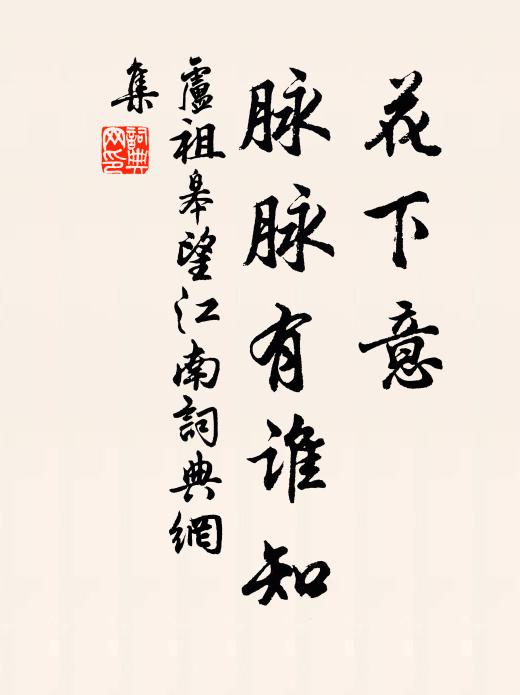 花下意
脉脉有谁知
盧祖皋望江南詞典網
集
詞典
网印